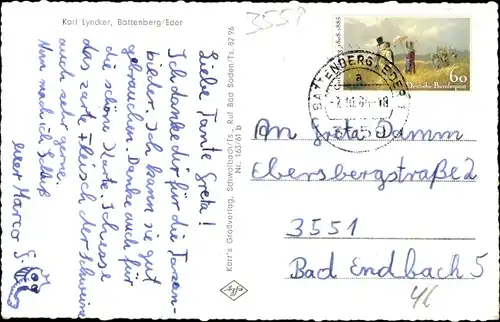 Karl Lyncker, Battenberg/Eder
3551
Liebe Tante Greta!
Ich danke dir für die Tarzan-
bilder. Ich kann sie gut
gebrauchen. Danke auch für
die schöne Karte. Ich esse
das zarte Fleisch der Schweine
auch sehr gerne.
Nun mach ich Schluß
euer Marco
Karr's Großverlag, Schwalbach/Ts., Ruf Bad Soden/Ts. 82 96
Nr. 163/61 b
1808-1885
Deutsche Bundespost
60
BATTENBERG (EDER)
a
An Greta Damm
Ebersbergstraße 2
3551
Bad Endbach 5